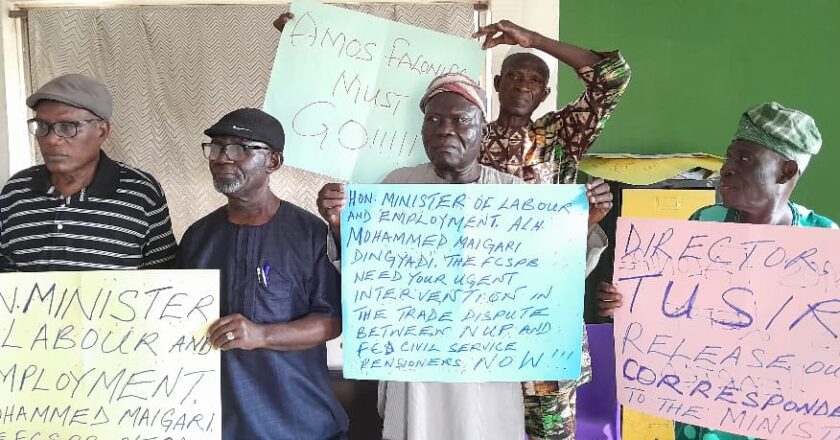 AMOS
MUST
GO!!!!!!
HON. MINISTER OF LABOUR
AND EMPLOYMENT. ALH.
MOHAMMED MAIGARI
DINGYADI, THE FCSPB
NEED YOUR UGENT
INTERVENTION IN
THE TRADE DISPUTE
BETWEEN NUP AND
FED CIVIL SERVICE
PENSIONERS. NOW!!!
N. MINISTER
LABOUR AND
MPLOYMENT.
OHAMMED MAIGARI.
DIRECTOR,
TUSIR
RELEASE OU
CORRESPOND
TO THE MINIST